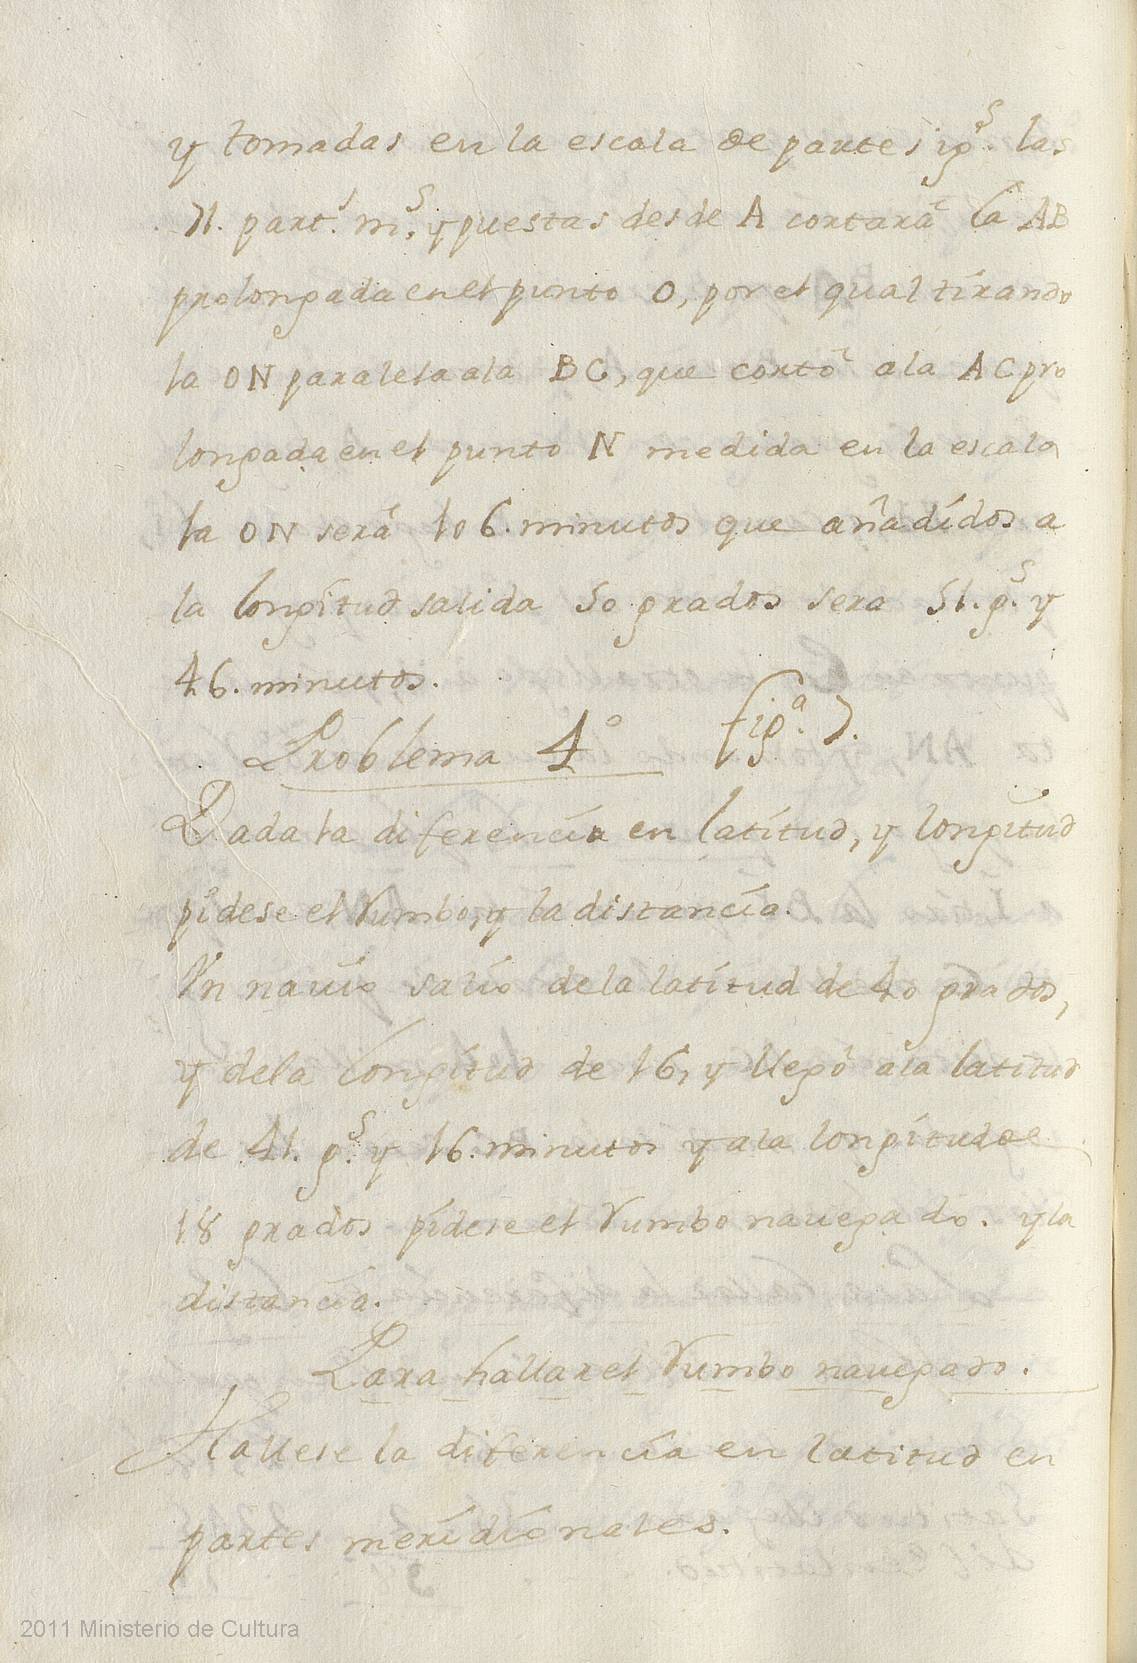 y tomadas en la escala de partes ig.s las
71. part.s m.s, y puestas desde A cortarà la AB
prolongada en el punto O, por el qual tirando
la ON paralela ala BC, que cortò ala AC pro
longada en el punto N medida en la escala
la ON serà 106. minutos que añadidos a
la longitud salida 50 grados sera 51. g.s y
46. minutos.
Problema 4º fig.a 7.
Dada la diferencia en latitud, y longitud
pidese el rumbo, y la distancia.
Vn navio salio dela latitud de 40 grados,
y dela longitud de 16, y llegò ala latitud
de 41. g.s y 16. minutos y ala longitud de
18 grados pidese el rumbo navegado. y la
distancia.
Para hallar el rumbo navegado.
Hallese la diferencia en latitud en
partes meridionales.
2011 Ministerio de Cultura